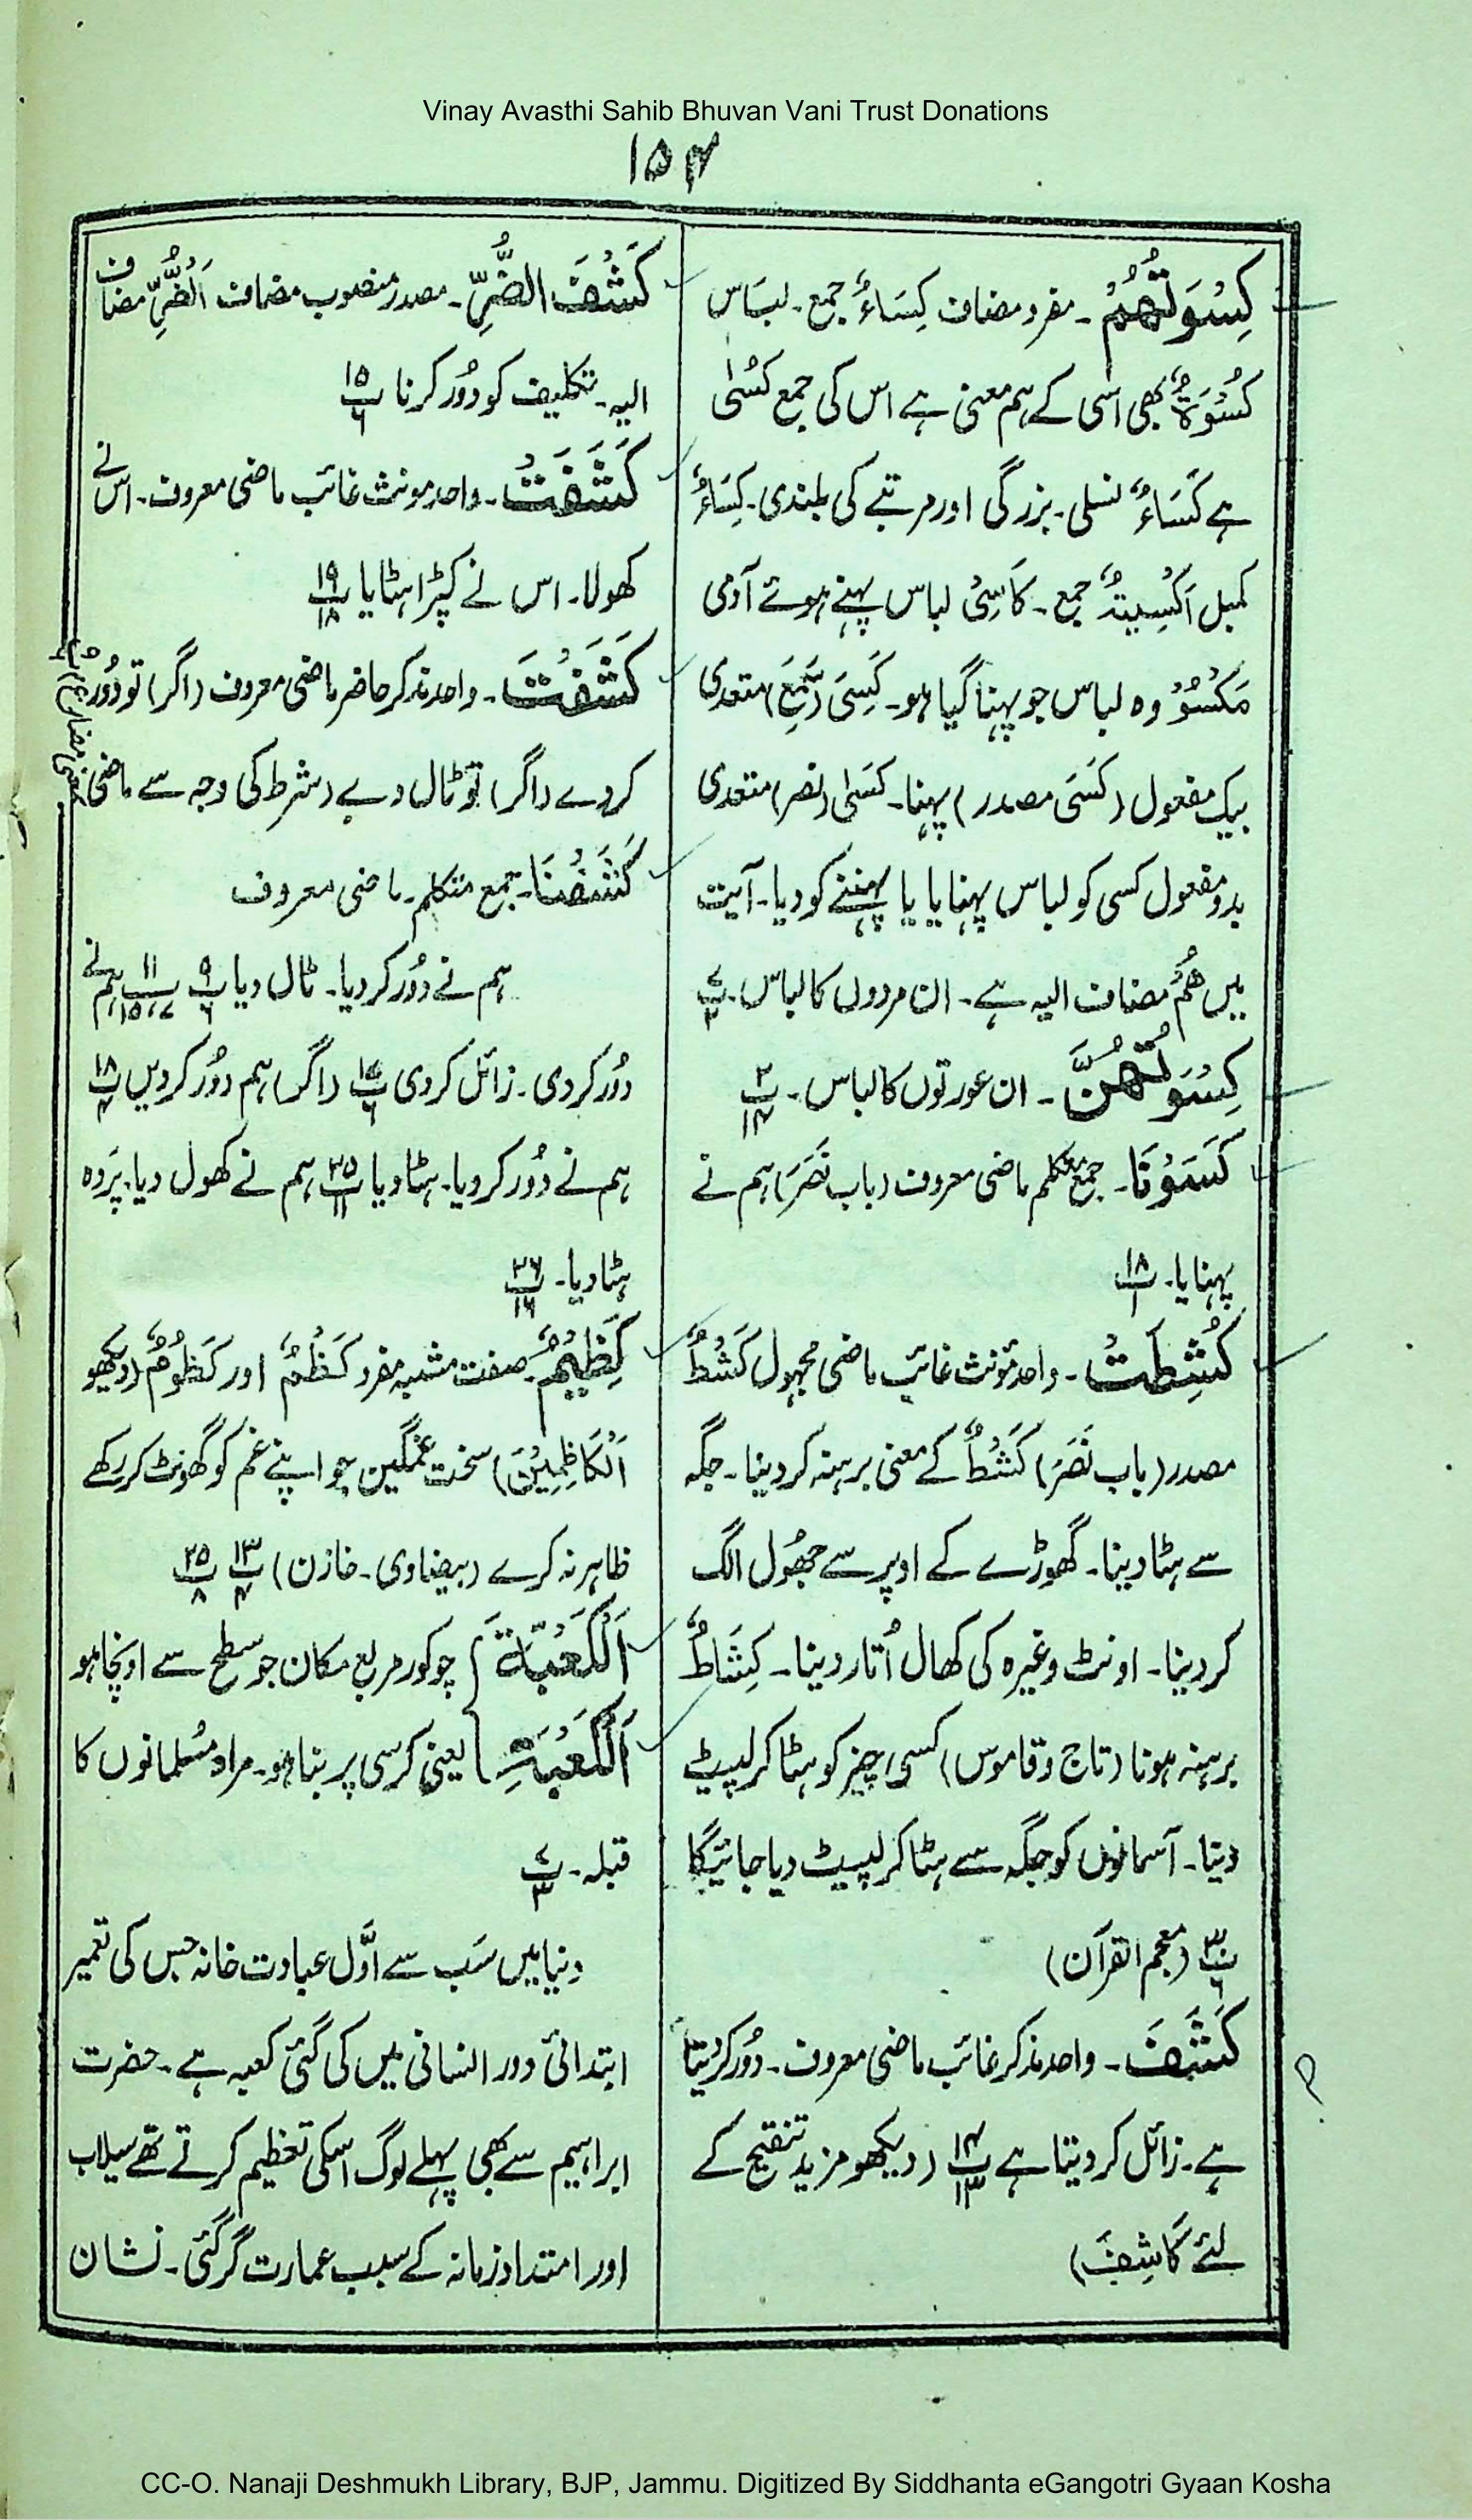 Vinay Avasthi Sahib Bhuvan Vani Trust Donations
۱۵۴
كِسْوَتُهُمْ ۔ مفرد مضاف كِسَاءٌ جمع ۔ لبَاس
كُسْوَةٌ بھی اسی کے ہم معنی ہے اس کی جمع كُسًى
ہے كَسَاءٌ نسلی ۔ بزرگی اور مرتبے کی بلندی ۔ كِسَاءٌ
کمبل اَكْسِيَةٌ جمع ۔ كَاسِیْ لباس پہنے ہوئے آدمی
مَكْسُوٌّ وہ لباس جو پہنا گیا ہو ۔ كَسِیَ (سَمِعَ) متعدی
بیک مفعول (كَسَی مصدر) پہنا ۔ كَسٰی (نصر) متعدی
بدو مفعول کسی کو لباس پہنایا یا پہننے کو دیا ۔ آیت
میں هُمْ مضاف الیہ ہے ۔ ان مردوں کا لباس ۔ پ۷ ۲
كِسْوَتُهُنَّ ۔ ان عورتوں کا لباس ۔ پ۲ ۱۴
كَسَوْنَا ۔ جمع متکلم ماضی معروف (باب نَصَرَ) ہم نے
پہنایا ۔ پ۱۸ ۱
كُشِطَتْ ۔ واحد مؤنث غائب ماضی مجہول كَشْطٌ
مصدر (باب نَصَرَ) كَشْطٌ کے معنی برہنہ کر دینا ۔ جگہ
سے ہٹا دینا ۔ گھوڑے کے اوپر سے جھُول الگ
کر دینا ۔ اونٹ وغیرہ کی کھال اُتار دینا ۔ كِشَاطٌ
برہنہ ہونا (تاج و قاموس) کسی چیز کو ہٹا کر لپیٹ
دینا ۔ آسمانوں کو جگہ سے ہٹا کر لپیٹ دیا جائیگا
پ۳۰ ۶ (معجم القرآن)
كَشَفَ ۔ واحد مذکر غائب ماضی معروف ۔ دُور کر دیتا
ہے ۔ زائل کر دیتا ہے پ۱۴ ۱۳ (دیکھو مزید تنقیح کے
لئے كَاشِفَ)
كَشْفَ الضُّرِّ ۔ مصدر منصوب مضاف اَلضُّرِّ مضاف
الیہ ۔ تکلیف کو دُور کرنا پ۱۵ ۶
كَشَفَتْ ۔ واحد مونث غائب ماضی معروف ۔ اس نے
کھولا ۔ اس نے کپڑا ہٹایا پ۱۹ ۱۸
كَشَفْتَ ۔ واحد مذکر حاضر ماضی معروف (اگر) تو دُور
کر دے (اگر) تو ٹال دے (شرط کی وجہ سے ماضی
كَشَفْنَا ۔ جمع متکلم ۔ ماضی معروف
ہم نے دُور کر دیا ۔ ٹال دیا پ۹ ۶ پ۱۱ ۷،۱۵ ہم نے
دُور کر دی ۔ زائل کر دی پ۱۷ ۶ (اگر) ہم دُور کر دیں پ۱۸ ۴
ہم نے دُور کر دیا ۔ ہٹا دیا پ۲۵ ۱۱ ہم نے کھول دیا ۔ پَردہ
ہٹا دیا ۔ پ۲۶ ۱۶
كَظِيْمٌ ۔ صفت مشبہ مفرد كَظْمٌ اور كَظُوْمٌ (دیکھو
اَلْكَاظِمِيْنَ) سخت غمگین جو اپنے غم کو گھونٹ کر رکھے
ظاہر نہ کرے (بیضاوی ۔ خازن) پ۱۳ ۴ پ۲۵ ۸
اَلْكَعْبَةَ } چوکور مربع مکان جو سطح سے اونچا ہو
اَلْكَعْبَةِ } یعنی کرسی پر بنا ہو ۔ مراد مسُلمانوں کا
قبلہ ۔ پ۷ ۳
دنیا میں سَب سے اوَّل عبادت خانہ جس کی تعمیر
ابتدائی دور انسانی میں کی گئی کعبہ ہے ۔ حضرت
ابراہیم سے بھی پہلے لوگ اسکی تعظیم کرتے تھے سیلاب
اور امتداد زمانہ کے سبب عمارت گر گئی ۔ نشان
CC-O. Nanaji Deshmukh Library, BJP, Jammu. Digitized By Siddhanta eGangotri Gyaan Kosha